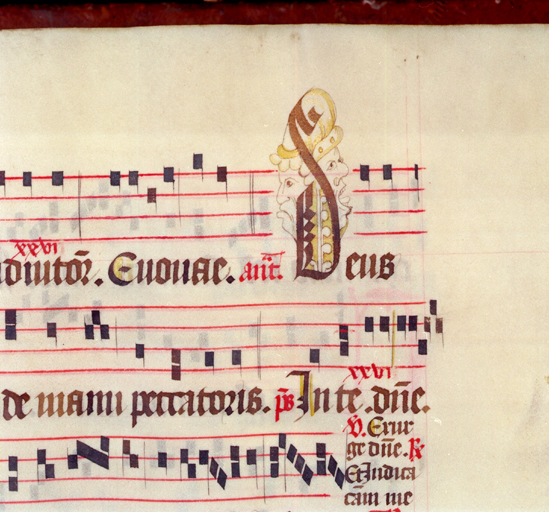 xxvi
adiutor̄. Euouae. an̄t. Deus
xxvi
de manu peccatoris. p̄s In te .dn̄e.
V. Exur
ge dn̄e. R
Et Iudica
cām me